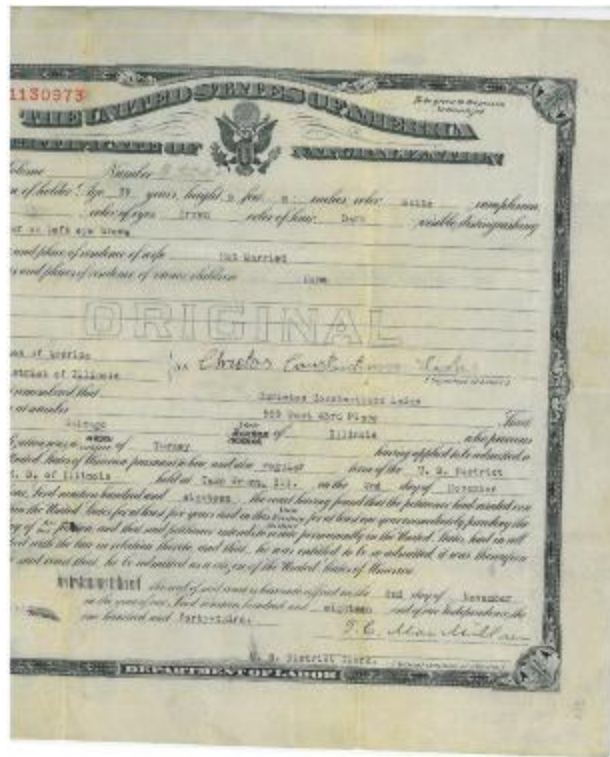 1130973
THE UNITED STATES OF AMERICA
CERTIFICATE OF NATURALIZATION
Volume Number
n of holder: Age, 29 years; height, feet, inches; color, White complexion,
color of eyes, Brown color of hair, Dark visible distinguishing
on left eye brow
and place of residence of wife Not Married
s and places of residence of minor children None
ORIGINAL
of America
strict of Illinois
ss
Christos Constantinou
remembered that
at number West 63rd Place
Chicago of Illinois who previous
of Turkey having applied to be admitted a
United States of America pursuant to law, and at a regular term of the U. S. District
N. D. of Illinois held at Camp Grant, Ill. on the 2nd day of November
nineteen hundred and eighteen the court having found that the petitioner had resided con
in the United States for at least five years and in this for at least one year immediately preceding the
and that said petitioner intends to reside permanently in the United States, had in all
with the law in relation thereto, and that he was entitled to be so admitted, it was thereupon
said court that he be admitted as a citizen of the United States of America.
the seal of said court is hereunto affixed on the 2nd day of November
in the year of our Lord nineteen hundred and eighteen and of our Independence the
one hundred and forty-third.
T. C. MacMillan
U. S. District Clerk.
DEPARTMENT OF LABOR